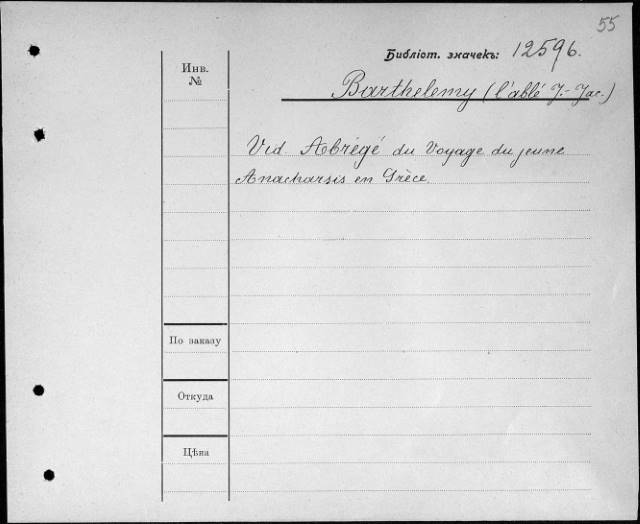 55
Библіот. значекъ: 12596.
Инв.
№
Barthelemy (l'abbé J.-Jac.)
Vid. Abrégé du Voyage du jeune
Anacharsis en Grèce.
По заказу
Откуда
Цѣна